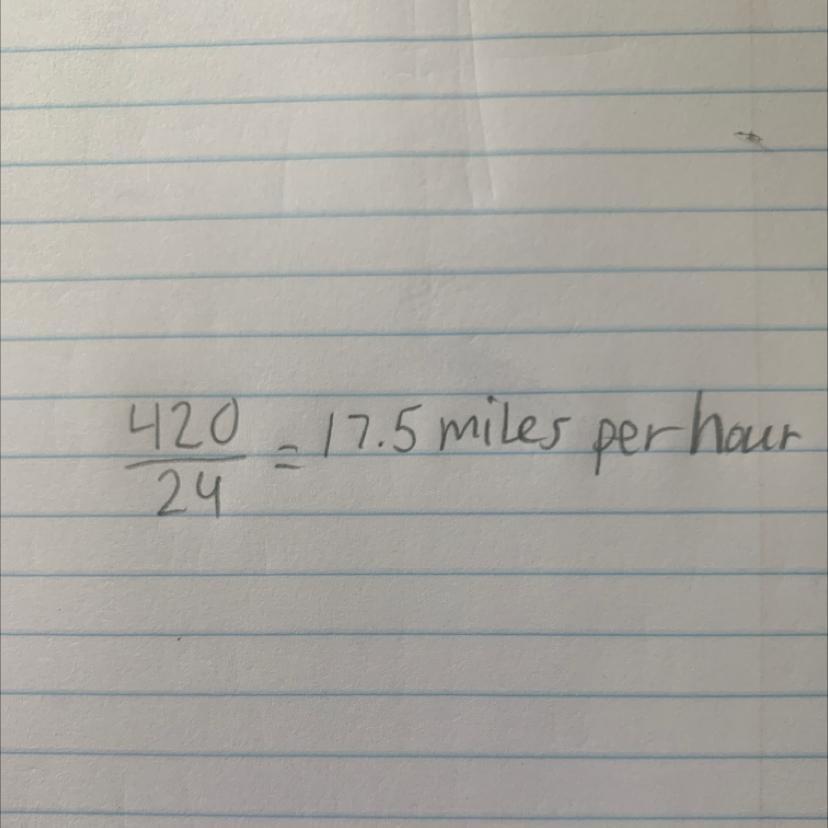 420/24 = 17.5 miles per hour